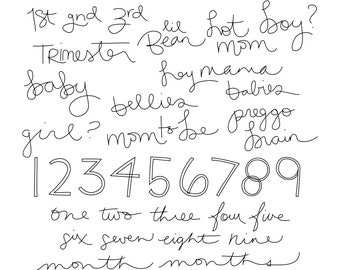 1st 2nd 3rd
lil
hot boy?
Trimester Bean mom
hey mama
baby
bellies
babies
girl?
mom to be
preggo
brain
123456789
one two three four five
six seven eight nine
month months